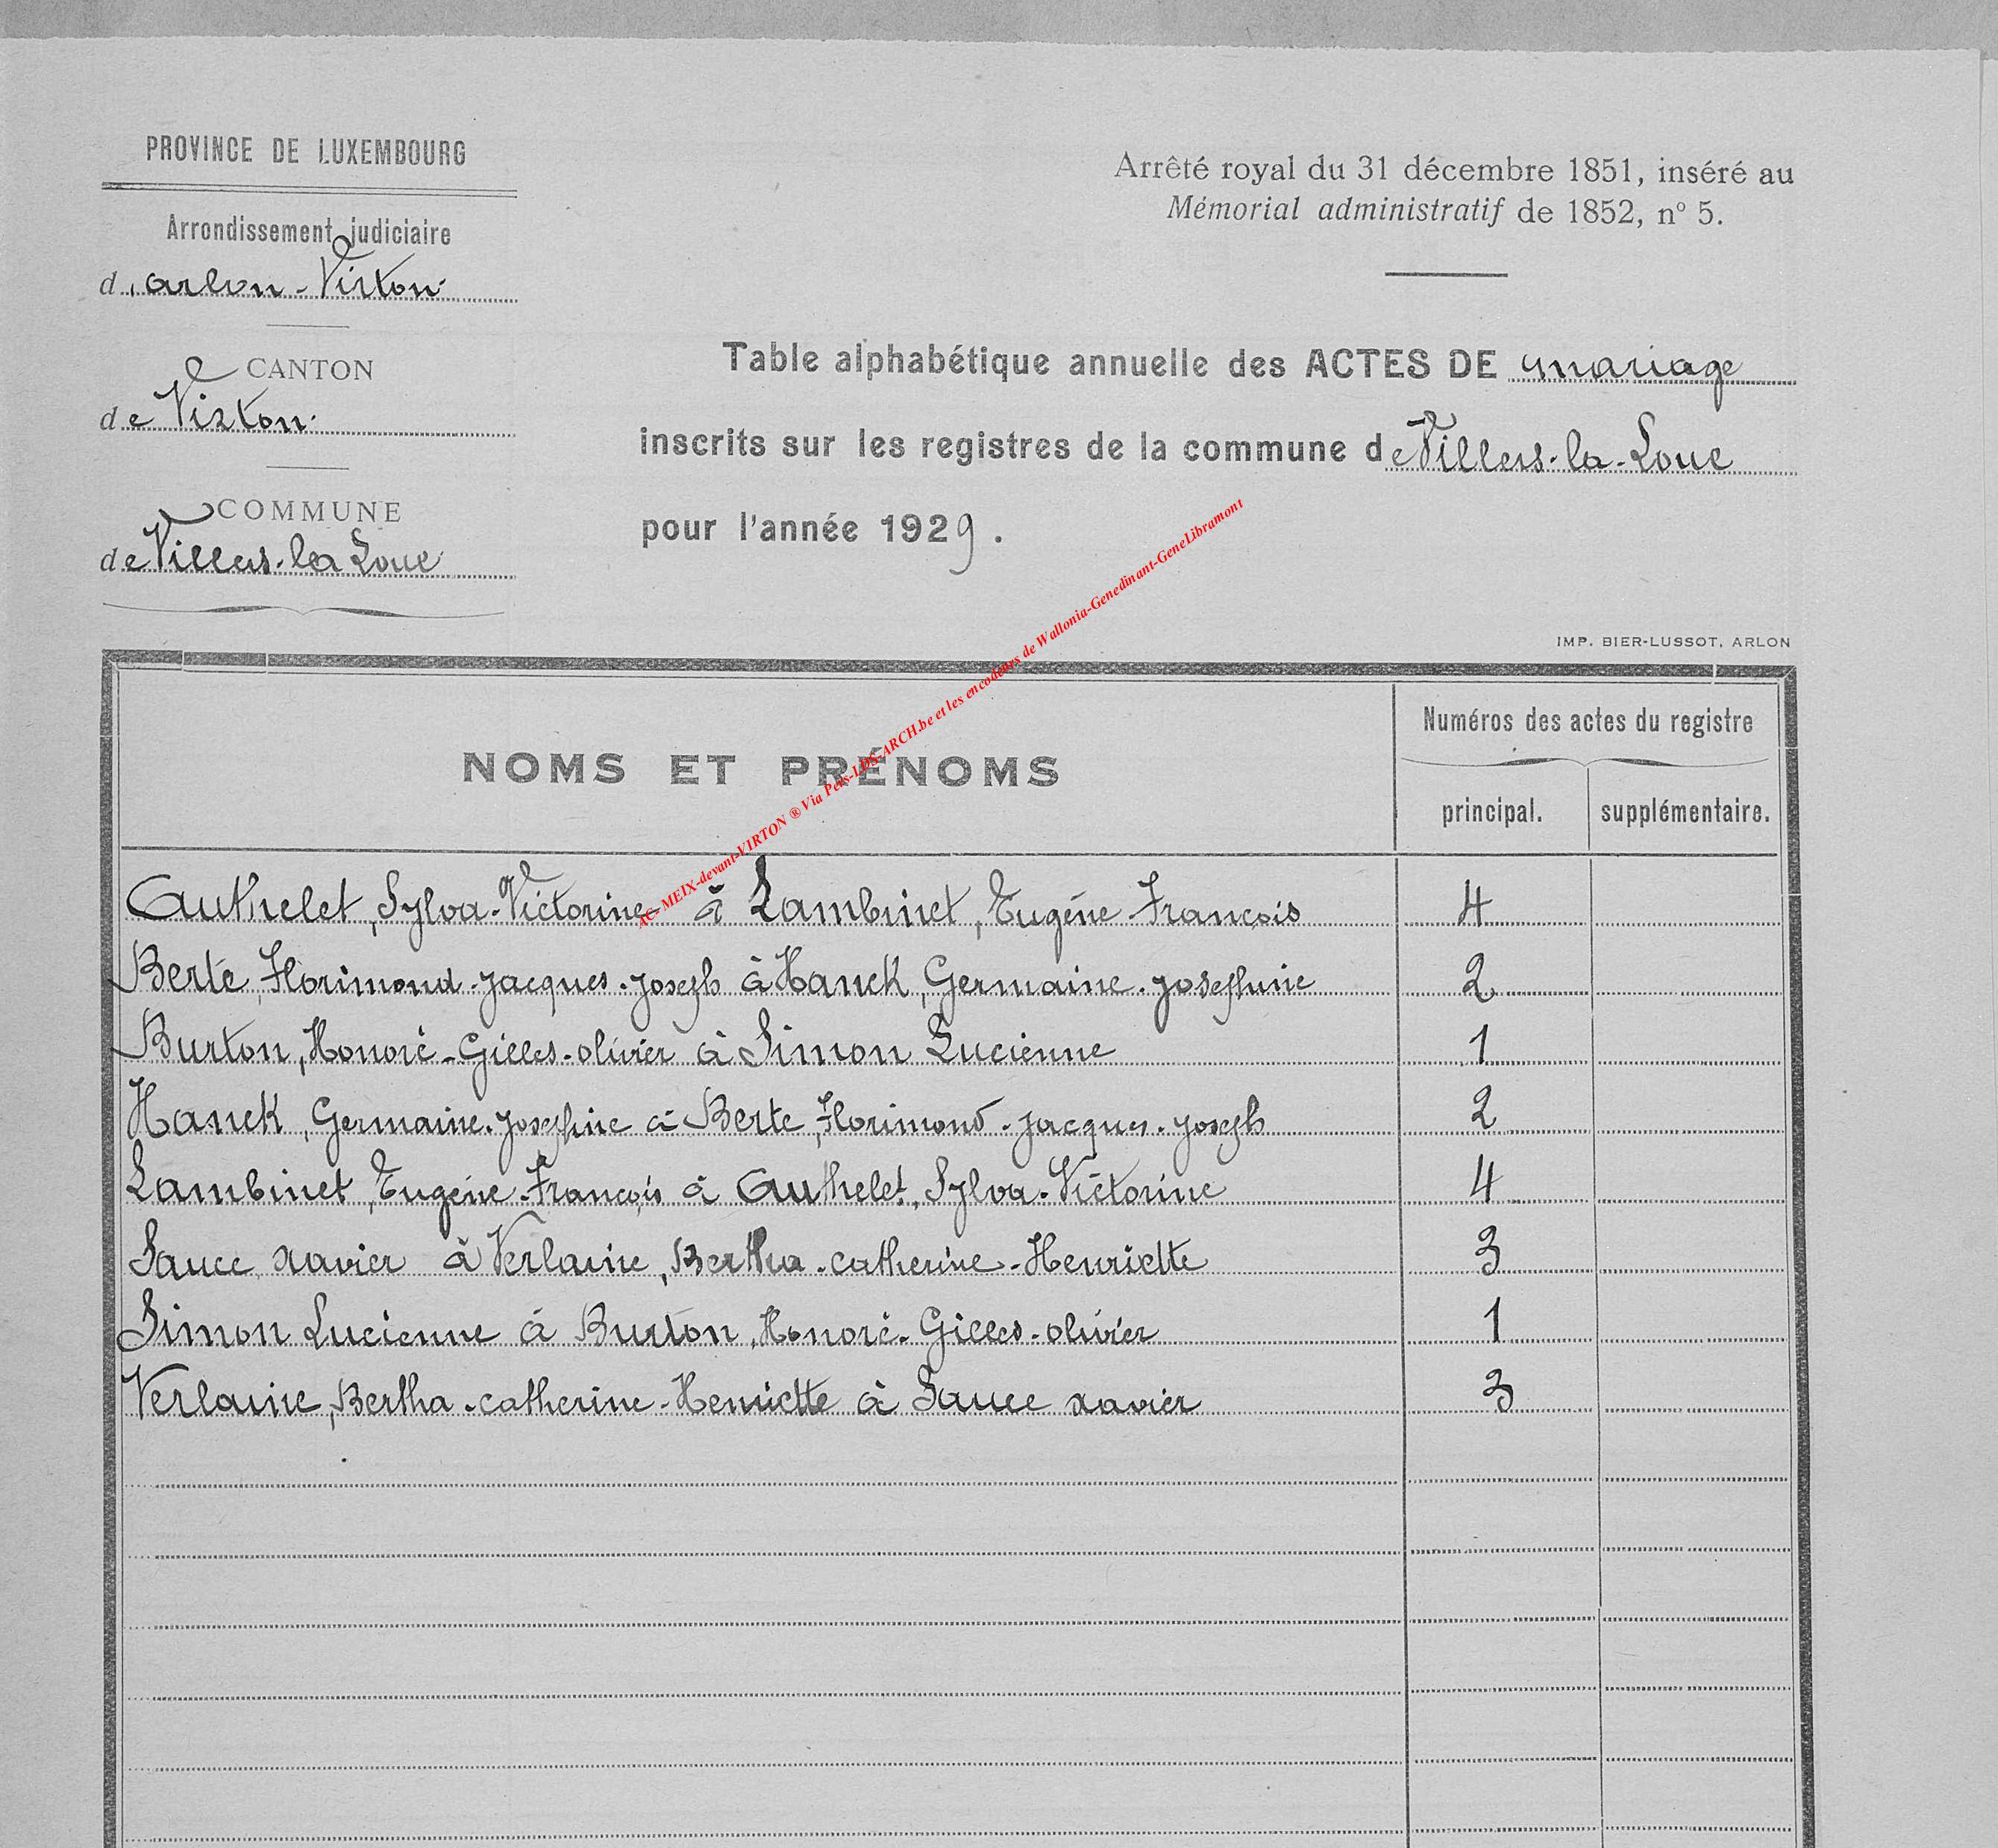 PROVINCE DE LUXEMBOURG
Arrondissement judiciaire
d'arlon-Virton
CANTON
de Virton
COMMUNE
de Villers-la Loue
Arrêté royal du 31 décembre 1851, inséré au
Mémorial administratif de 1852, n° 5.
Table alphabétique annuelle des ACTES DE mariage
inscrits sur les registres de la commune de Villers-la-Loue
pour l'année 1929.
AC-MEIX-devant-VIRTON ® Via Pers-LDS-ARCH.be et les encodeurs de Wallonia-Genedinant-GeneLibramont
IMP. BIER-LUSSOT, ARLON
NOMS ET PRÉNOMS
Numéros des actes du registre
principal. supplémentaire.
Authelet, Sylva-Victorine à Lambinet, Eugène-François 4
Berte, Florimond-Jacques-Joseph à Hanck, Germaine-Joséphine 2
Burton, Honoré-Gilles-olivier à Simon Lucienne 1
Hanck, Germaine-Joséphine à Berte, Florimond-Jacques-Joseph 2
Lambinet, Eugène-François à Authelet, Sylva-Victorine 4
Sauce xavier à Verlaine, Bertha-catherine-Henriette 3
Simon Lucienne à Burton, Honoré-Gilles-olivier 1
Verlaine, Bertha-catherine-Henriette à Sauce xavier 3